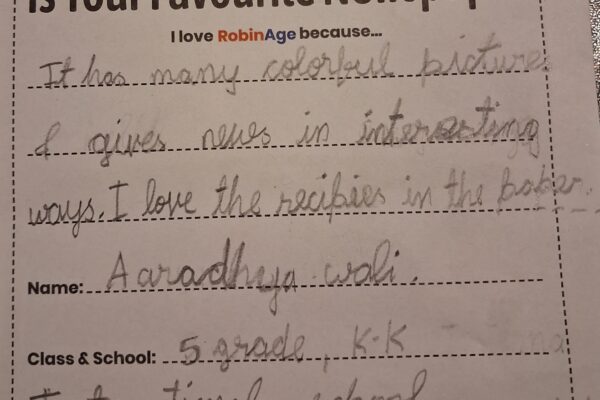 is Your Favourite Newspap
I love RobinAge because...
It has many colorful pictures
& gives news in interesting
ways. I love the recipies in the paper.
Name: Aaradhya wali.
Class & School: 5 grade, K-K
International school